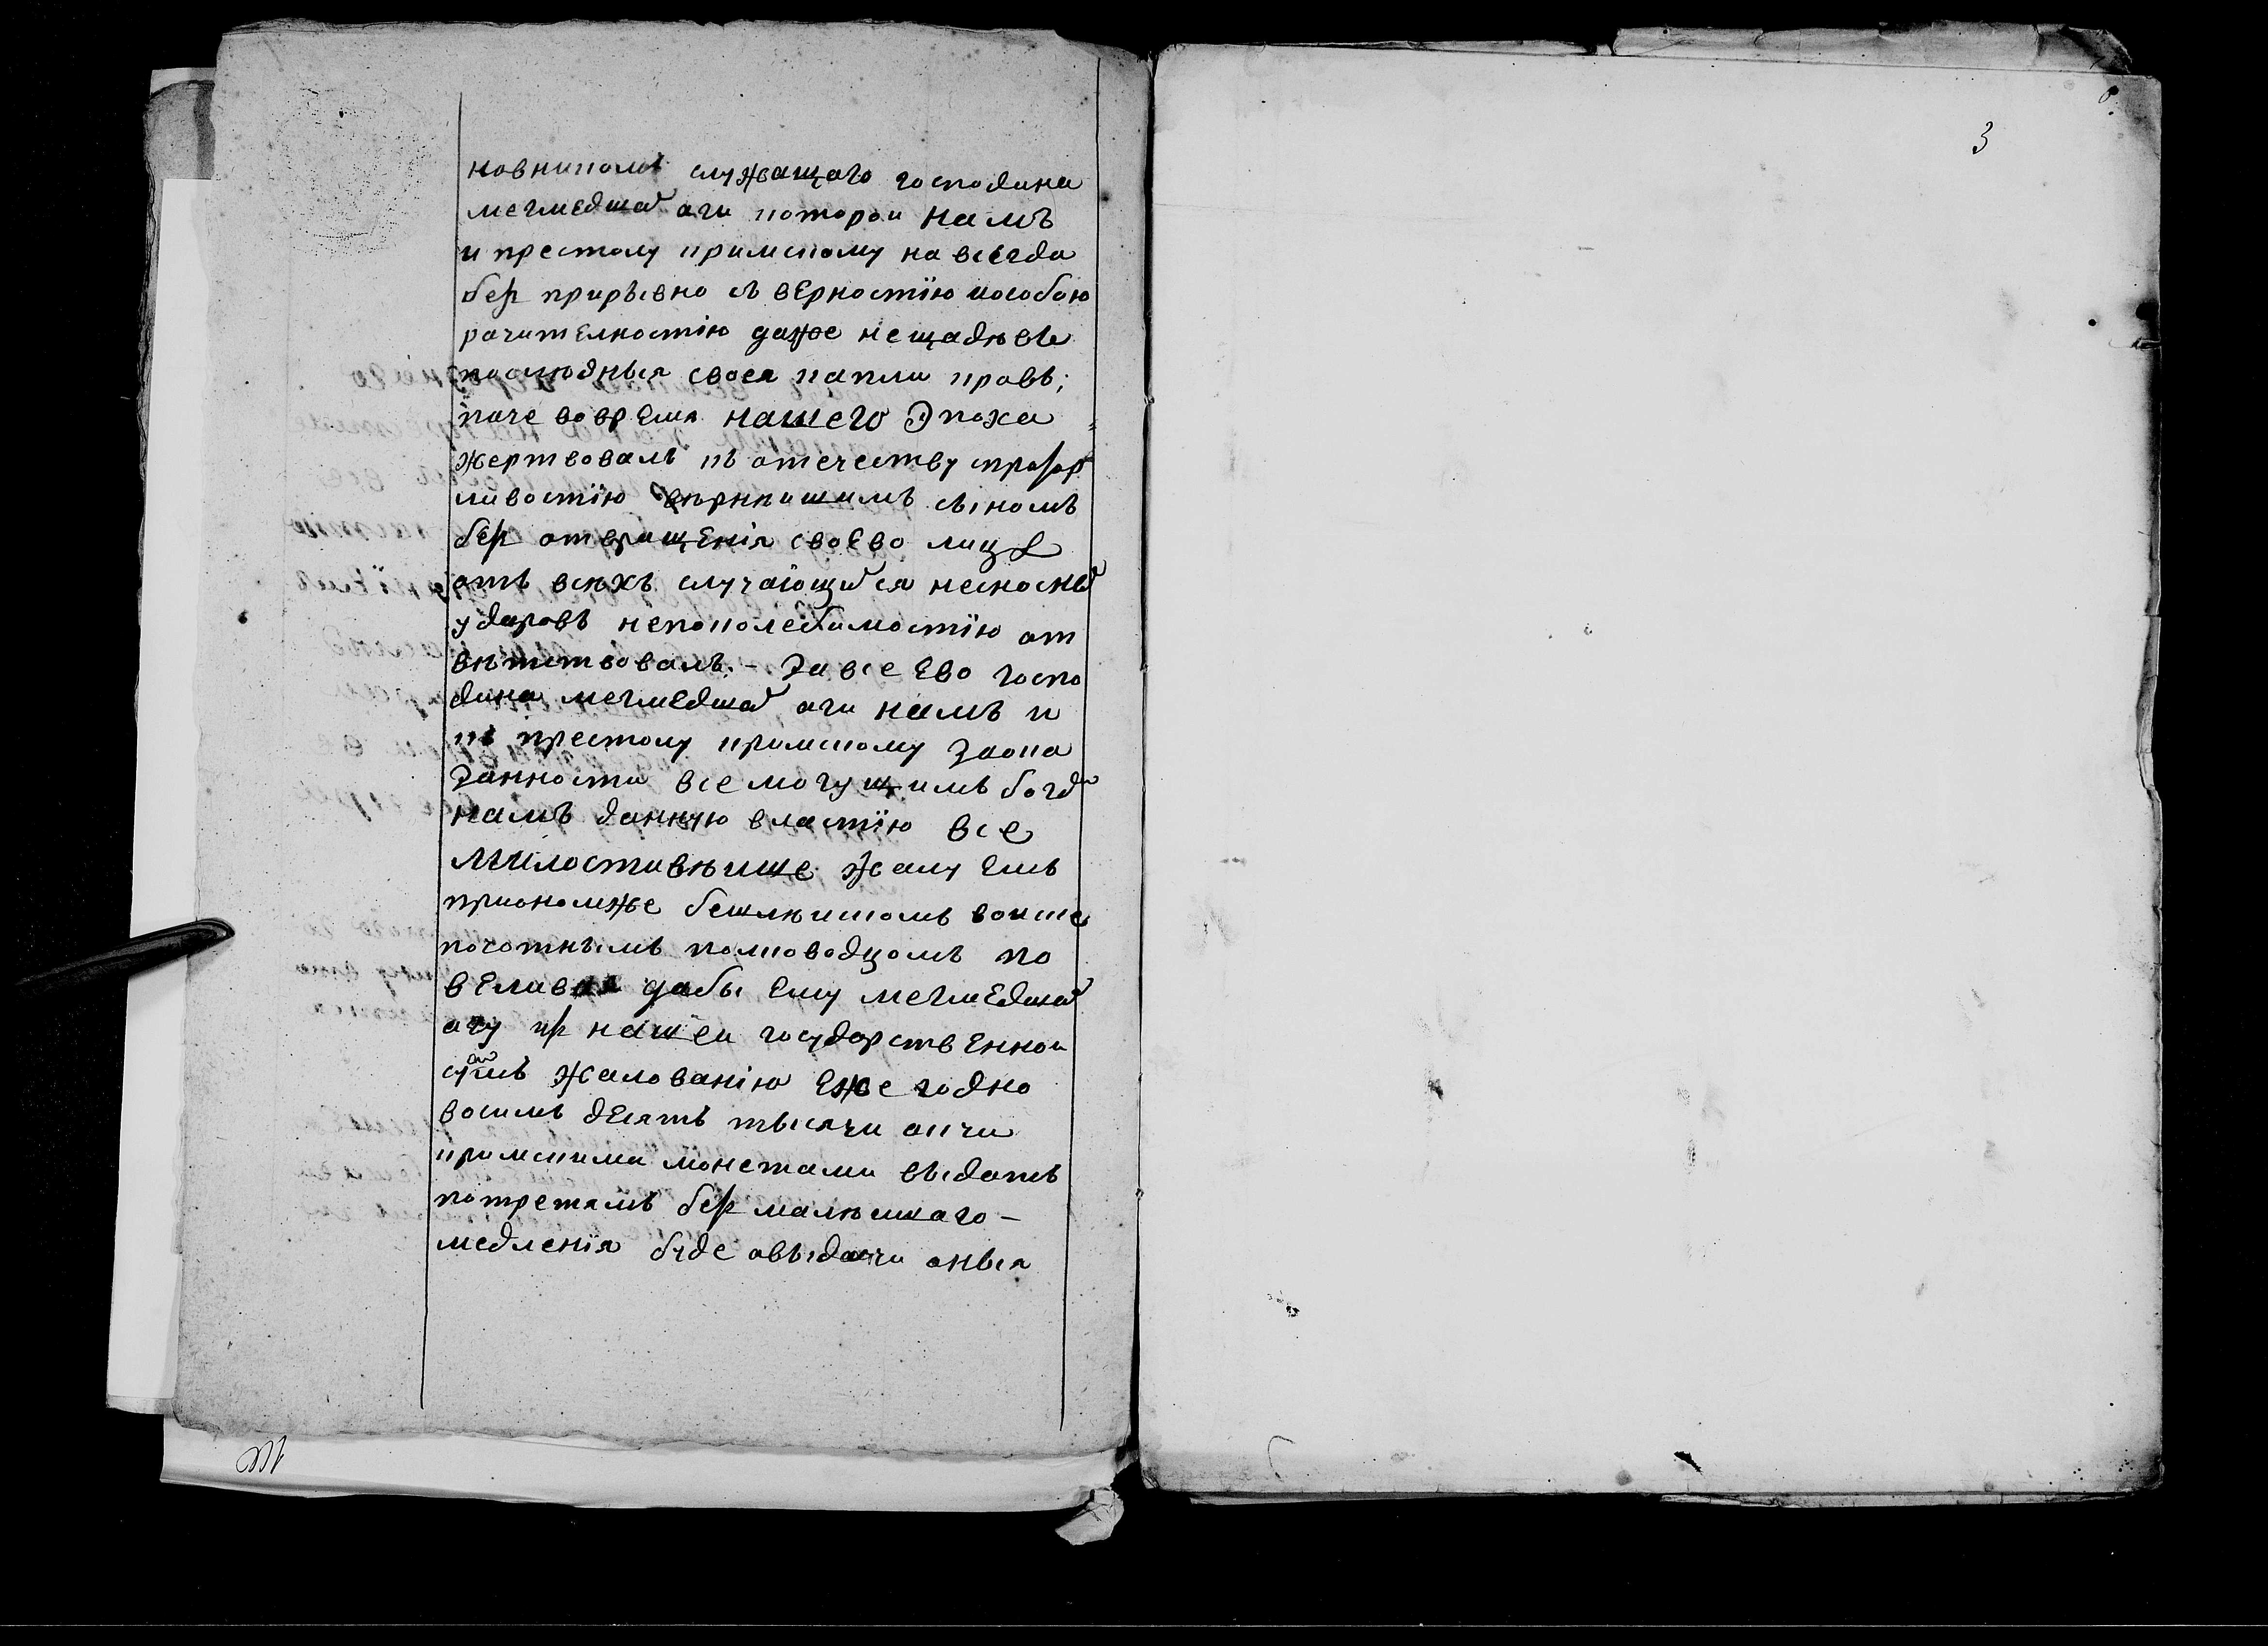 3
новникомъ служащаго господина
мегмедшаи аги которои намъ
и престолу крымскому на всегда
без прирывно съ верностїю иособою
рачителностїю даже нещадѣвъ
послюдныя своея капли кровъ;
паче вовремя нашего Эпоха
жертвовалъ къ отечеству прозор
ливостїю вѣрнѣишимъ сыномъ
без отвращенїя своево лица
отъ всѣхъ случаюющихся несносны
ударовъ непоколебимостїю от
вѣтствовалъ. – За все ево госпо
дина мегмедшаи аги намъ и
къ престолу крымскому заока
занности все могущимъ богдм
намъ данную властїю все
милостивѣише жалуемъ
приономже бешлѣискомъ воиске
посотнымъ полководцомъ по
веливая дабы ему мегмедшаи
агу из нашеи государственнои
сумъ жалованїю ежегодно
восимъ десятъ тысячи акчи
крымскими монетами выдать
потретямъ без малѣишаго –
медленїя буде овыдачи оныя